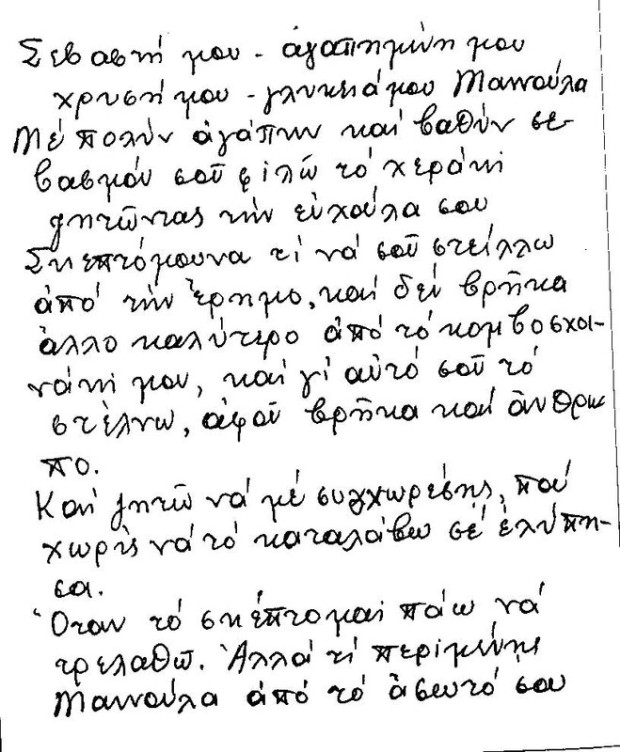 Σεβαστή μου - ἀγαπημένη μου
χρυσή μου - γλυκειά μου Μαννούλα
Μέ πολύν ἀγάπην καί βαθύν σε-
βασμόν σοῦ φιλῶ τό χεράκι
ζητῶντας τήν εὐχούλα σου
Σκεπτόμουνα τί νά σοῦ στείλλω
ἀπό τήν ἔρημο, καί δέν βρῆκα
ἄλλο καλύτερο ἀπό τό κομβοσχοι-
νάκι μου, καί γι αὐτό σοῦ τό
στέλνω, ἀφοῦ βρῆκα καί ἄνθρω
πο.
Καί ζητῶ νά μέ συγχωρέσης, πού
χωρίς νά τό καταλάβω σέ ἐλύπη-
σα.
Ὅταν τό σκέπτομαι πάω νά
τρελαθῶ. Ἀλλά τί περιμένης
Μαννούλα ἀπό τό ἄσωτό σου